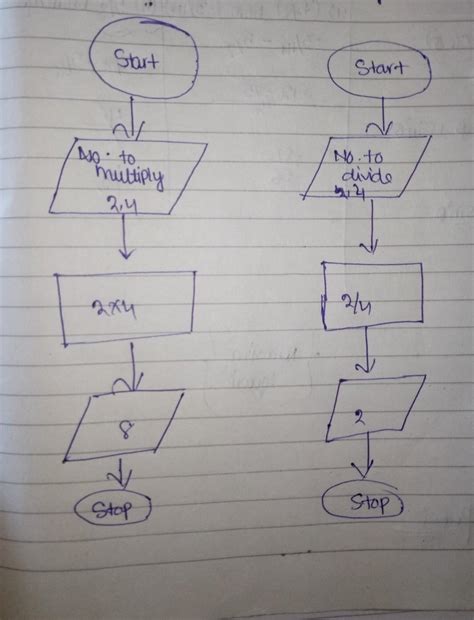 Start
No. to
multiply
2,4
2×4
8
Stop
Start
No. to
divide
2,4
2/4
2
Stop